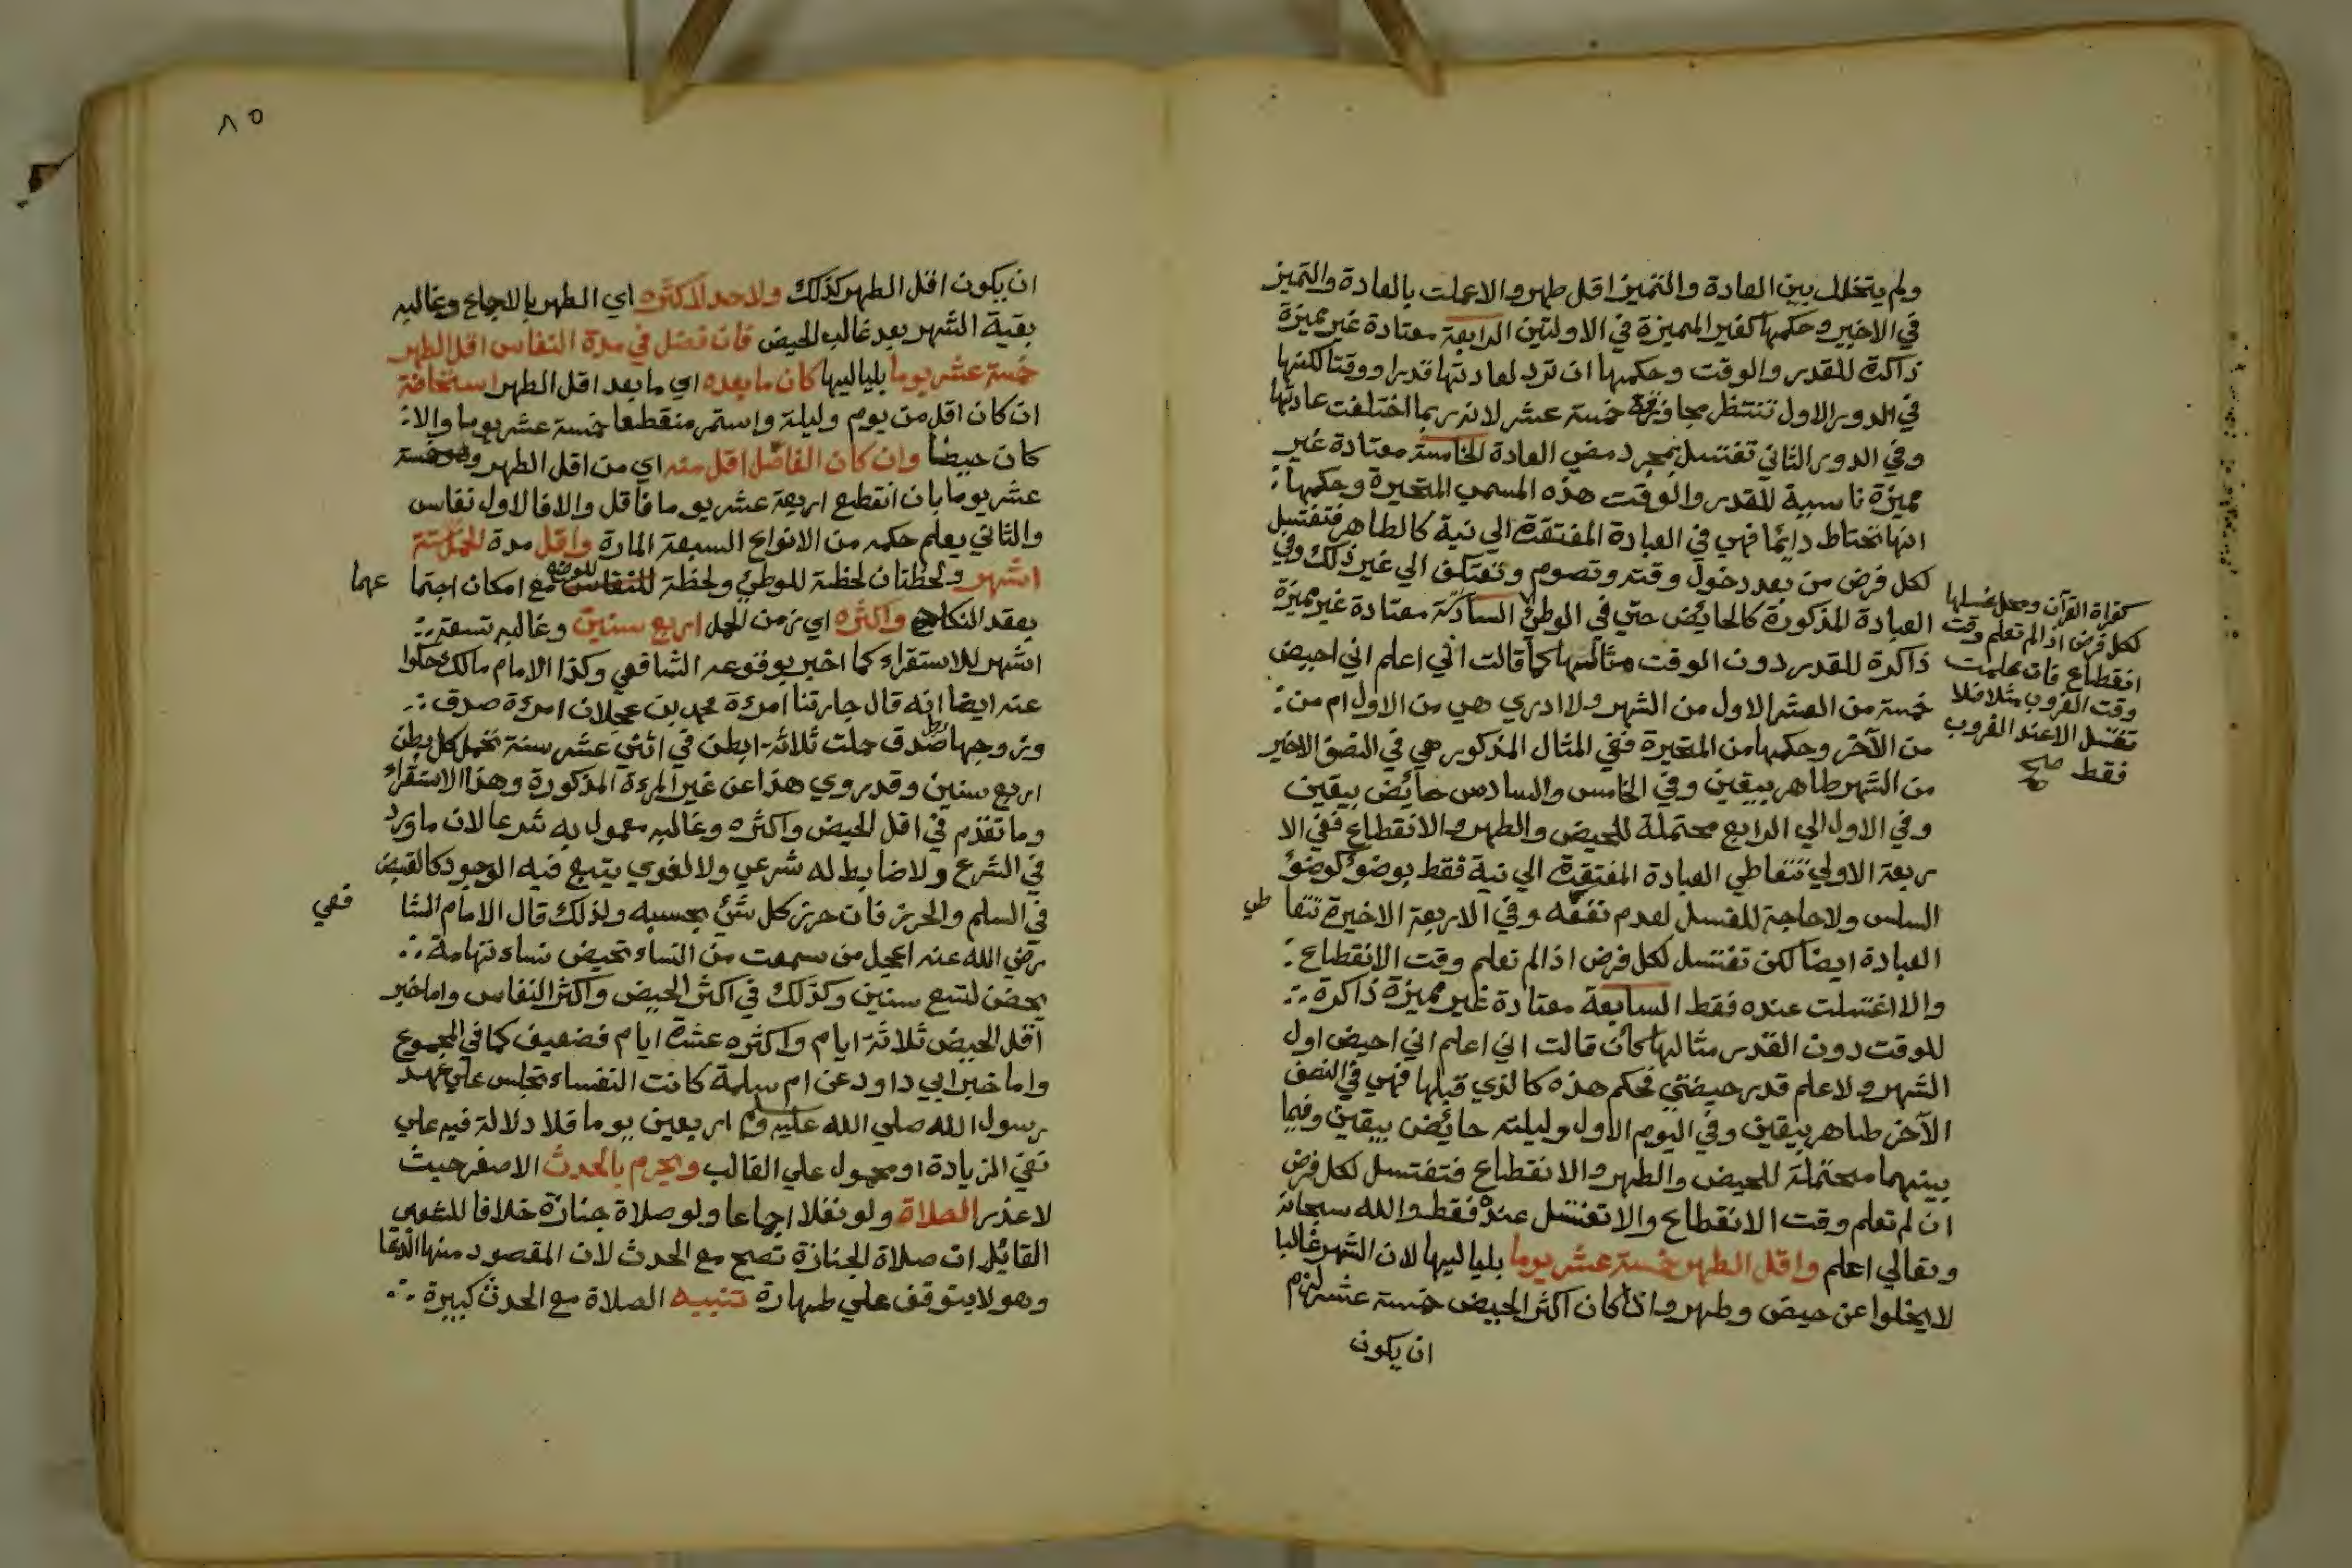 ولم يتخلل بين العادة والتميز اقل طهر والا عملت بالعادة والتميز
في الاخير وحكمها كغير المميزة في الاولتين الرابعة معتادة غير مميزة
ذاكرة للقدر والوقت وحكمها ان ترد لعادتها قدرا ووقتا لكنها
في الدور الاول تنتظر مجاوزة خمسة عشر لانه ربما اختلفت عادتها
وفي الدور الثاني تغتسل بمجرد مضي العادة الخامسة معتادة غير
مميزة ناسية للقدر والوقت هذه المسمى المتحيرة وحكمها
انها تحتاط دايما فهي في العبادة المفتقرة الي نية كالطاهر فتغتسل
لكل فرض من بعد دخول وقته وتصوم وتعتكف الي غير ذلك وفي
العبادة المذكورة كالحايض حتي في الوطئ السادسة معتادة غير مميزة
ذاكرة للقدر دون الوقت مثالها كما قالت اني اعلم اني احيض
خمسة من العشر الاول من الشهر ولا ادري هي من الاول ام من
من الآخر وحكمها من المتحيرة ففي المثال المذكور هي في النصف الاخير
من الشهر طاهر بيقين وفي الخامس والسادس حائض بيقين
وفي الاول الي الرابع محتملة للحيض والطهر والانقطاع ففي الا
ربعة الاولي تتعاطي العبادة المفتقرة الي نية فقط بوضوء كوضوء
السلس ولا حاجة للغسل لعدم نفعه وفي الاربعة الاخيرة تتعا طي
العبادة ايضا لكن تغتسل لكل فرض اذا لم تعلم وقت الانقطاع
والا اغتسلت عنده فقط السابعة معتادة غير مميزة ذاكرة
للوقت دون القدر مثالها كان قالت اني اعلم اني احيض اول
الشهر ولا علم قدر حيضتي فحكم هذه كالذي قبلها فهي في النصف
الآخر طاهر بيقين وفي اليوم الاول وليلته حائض بيقين وفيما
بينهما محتملة للحيض والطهر والانقطاع فتغتسل لكل فرض
ان لم تعلم وقت الانقطاع والا تغتسل عنده فقط والله سبحانه
وتعالي اعلم واقل الطهر خمسة عشر يوما بلياليها لان الشهر غالبا
لا يخلوا عن حيض وطهر واذا كان اكثر الحيض خمسة عشر لزم
ان يكون
كقراة القرآن ومحل غسلها
لكل فرض اذا لم تعلم وقت
انقطاع فان علمت
وقت الغروب مثلا فلا
تغتسل الا عند الغروب
فقط صح
٨٥
ان يكون اقل الطهر كذلك ولا حد لاكثره اي الطهر بالاجماع وغالبه
بقية الشهر بعد غالب الحيض فان فصل في مدة النفاس اقل الطهر
خمسة عشر يوما بلياليها كان ما بعده اي ما بعد اقل الطهر استحاضة
ان كان اقل من يوم وليلة واستمر منقطعا خمسة عشر يوما والا
كان حيضا وان كان الفاصل اقل منه اي من اقل الطهر وهو خمسة
عشر يوما بان انقطع اربعة عشر يوما فاقل والا فالاول نفاس
والثاني يعلم حكمه من الانواع السبعة المارة واقل مدة الحمل ستة
اشهر ولحظتان لحظة للوطئ ولحظة للوضع مع امكان اجتما عهما
بعقد النكاح واكثره اي زمن الحمل اربع سنين وغالبه تسعة
اشهر للاستقراء كما اخبر بوقوعه الشافعي وكذا الامام مالك حكوا
عنه ايضا انه قال جارتنا امرءة محمد بن عجلان امرءة صدق
وزوجها صدق حملت ثلاثة ابطن في اثني عشر سنة تحمل كل بطن
اربع سنين وقد روي هذا عن غير المرءة المذكورة وهذا الاستقراء
وما تقدم في اقل الحيض واكثره وغالبه معمول به شرعا لان ما ورد
في الشرع ولا ضابط له شرعي ولا لغوي يتبع فيه الوجود كالقبض
في السلم والحرز فان حرز كل شئ بحسبه ولذلك قال الامام الشا فعي
رضي الله عنه اعجل من سمعت من النساء تحيض نساء تهامة
يحضن لتسع سنين وكذلك في اكثر الحيض واكثر النفاس واما خبر
اقل الحيض ثلاثة ايام واكثره عشرة ايام فضعيف كما في المجموع
واما خبر ابي داود عن ام سلمة كانت النفساء تجلس علي عهد
رسول الله صلي الله عليه وسلم اربعين يوما فلا دلالة فيه علي
نفي الزيادة او محمول علي الغالب ويحرم بالحدث الاصغر حيث
لا عذر الصلاة ولو نفلا اجماعا ولو صلاة جنازة خلافا للشعبي
القائل ان صلاة الجنازة تصح مع الحدث لان المقصود منها الدعا
وهو لا يتوقف علي طهارة تنبيه الصلاة مع الحدث كبيرة